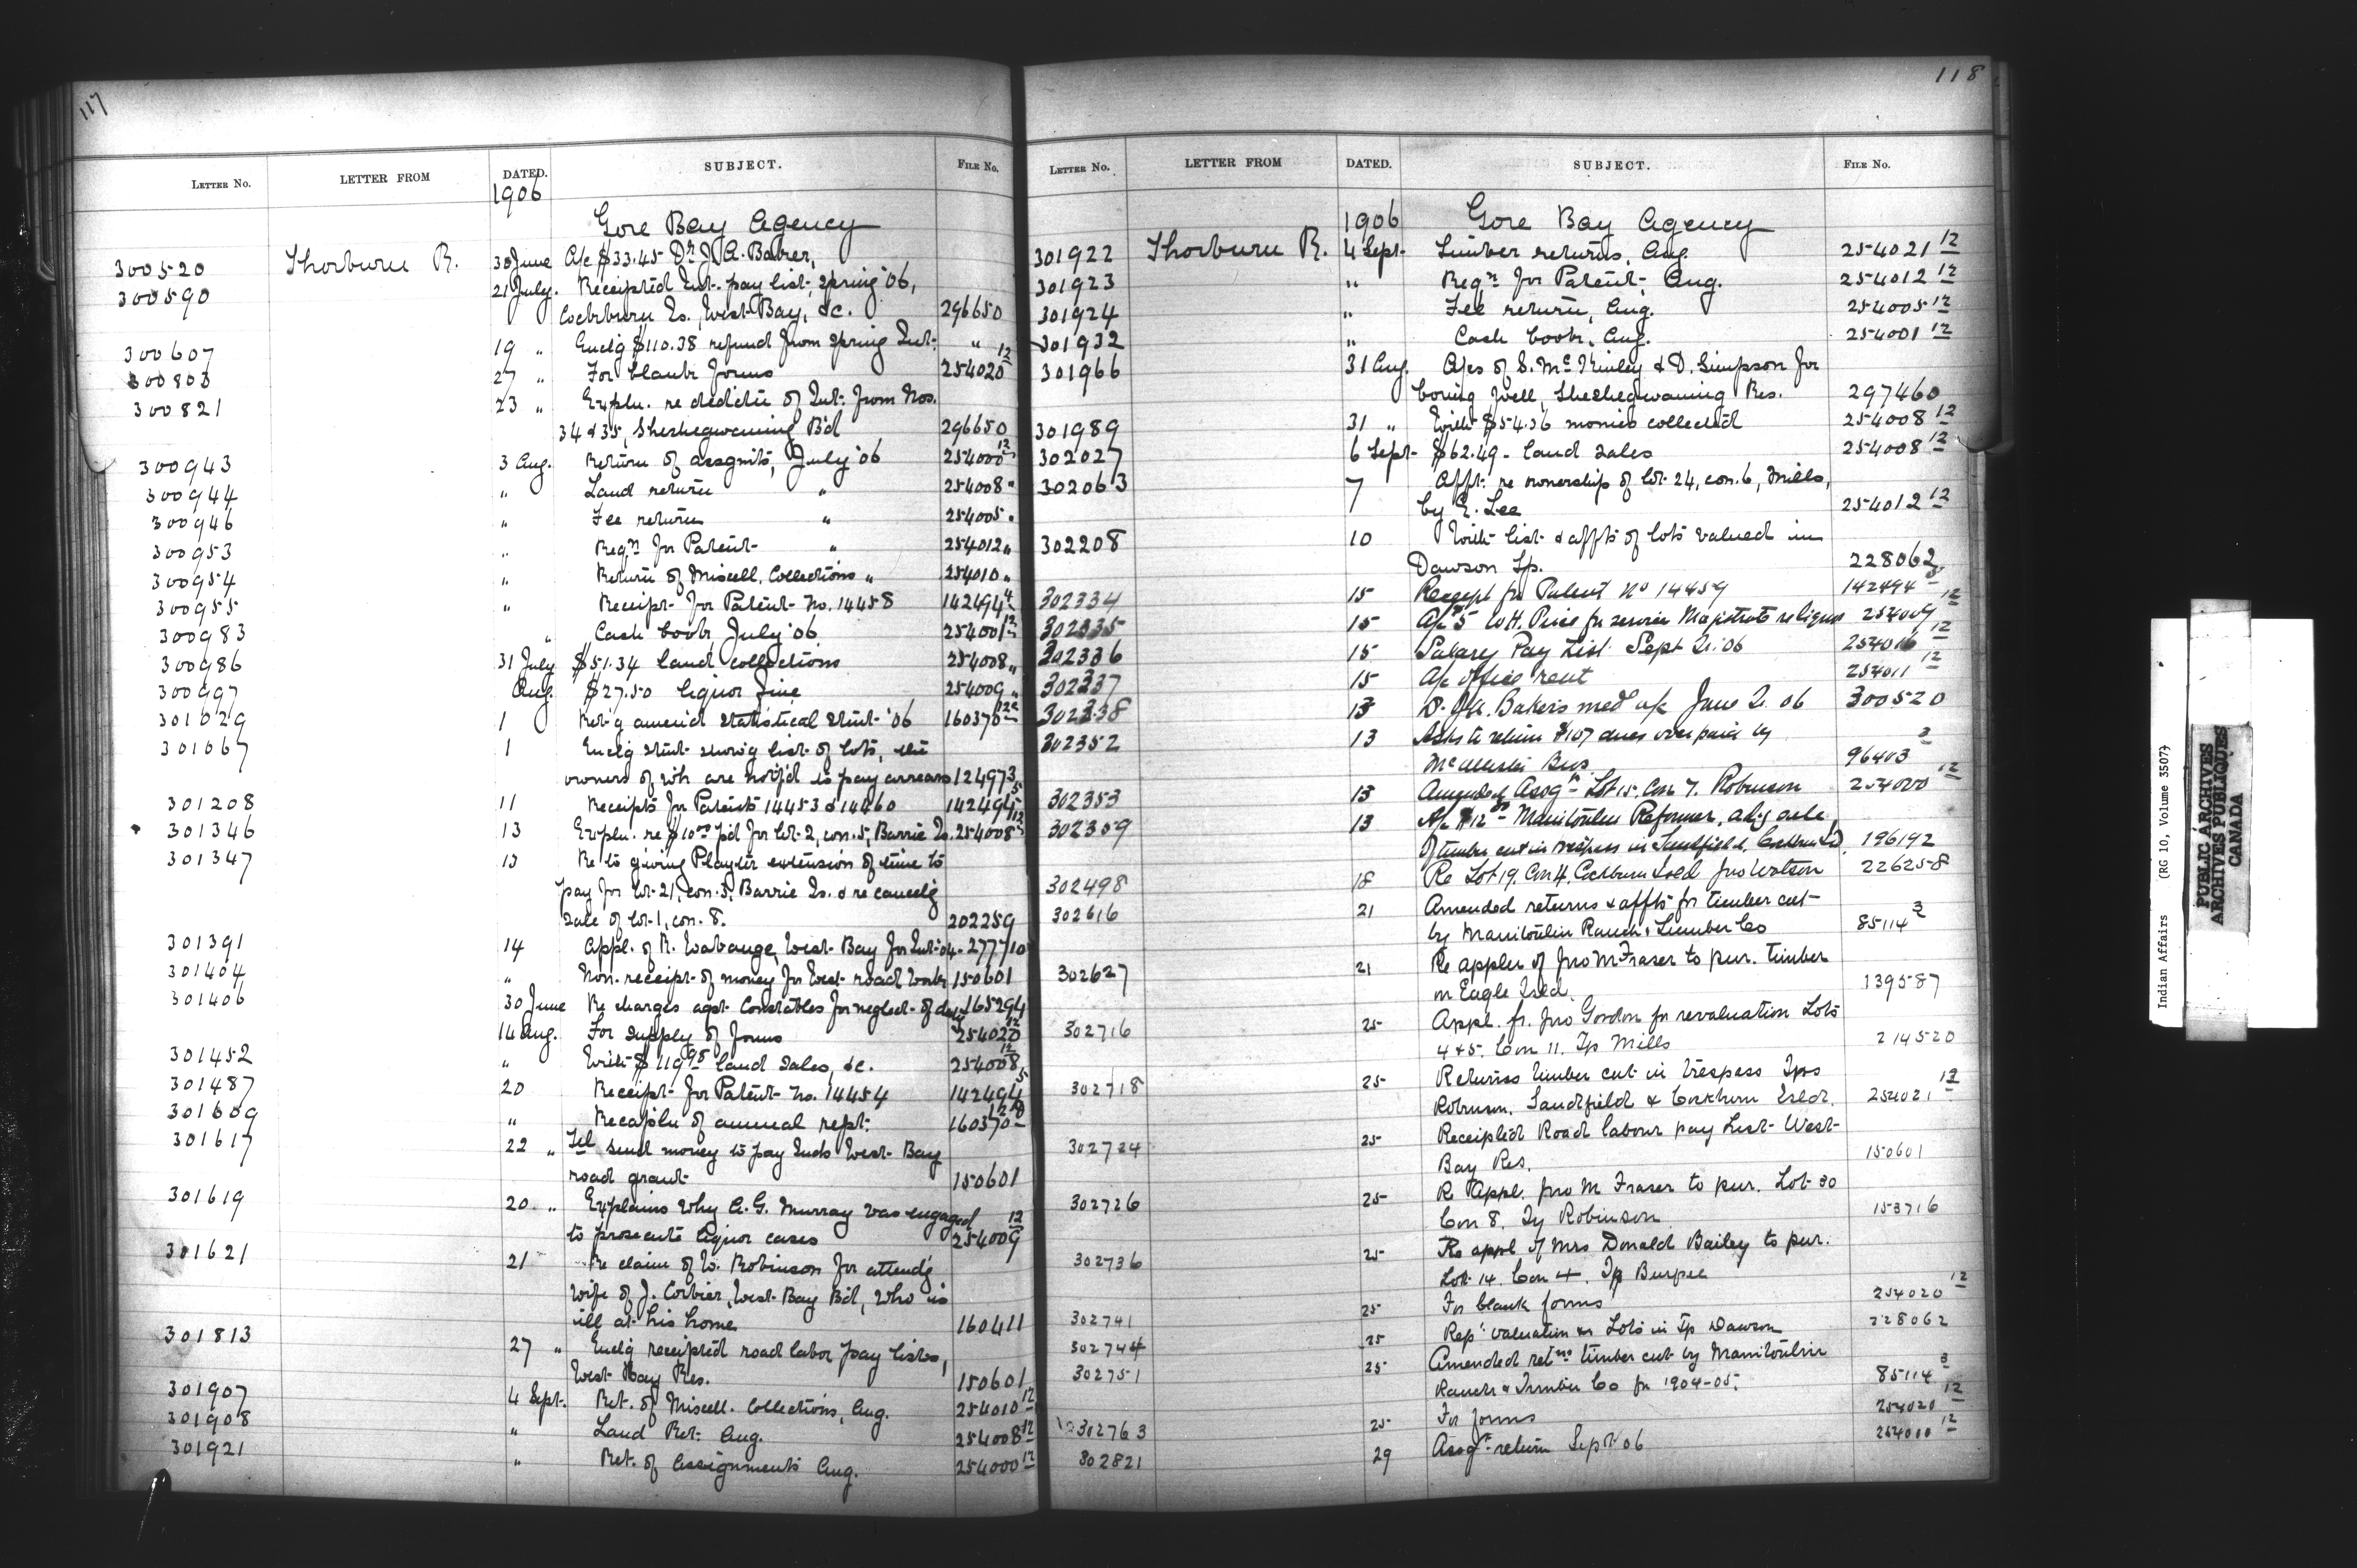 117
LETTER NO. LETTER FROM DATED. SUBJECT. FILE NO.
1906
Gore Bay Agency
300520 Thorburn R. 30 June A/c $33.45 Dr J. A. Baker,
300590 21 July. Receipted Int. pay list, spring '06,
Cockburn Is., West Bay, &c. 296650
300607 19 " Enclg $110.38 refund from spring Int. "
300803 27 " For blank forms 254020 12
300821 23 " Expln. re deduction of Int. from Nos.
34 & 35, Sheshegwaning Bd 296650
300943 3 Aug. Return of assgnmts, July '06 254000 12
300944 " Land return " 254008 "
300946 " Fee return " 254005 "
300953 " Reqn for Patent " 254012 "
300954 " Return of Miscell. Collections " 254010 "
300955 " Receipt for Patent No. 14458 142494 4
300983 " Cash book July '06 254001 12
300986 31 July $51.34 land collections 254008 "
300997 Aug. $27.50 liquor fine 254009 "
301029 1 Ret'g amend statistical stmt '06 160370 12
301067 1 Enclg stmt show'g list of lots, the
owners of wh. are notif'd to pay arrears 124973
301208 11 Receipts for Patents 14453 & 14460 142494 5
301346 13 Expln. re $10.00 p'd for lot 2, con. 5, Barrie Is. 254008 12
301347 13 Re to giving Playter extension of time to
pay for lot 21, con. 3, Barrie Is. & re cancelg
sale of lot 1, con. 8. 202259
301391 14 Appl. of R. Wabauge, West Bay for Int. '04. 277710
301404 " Non-receipt of money for West road work 150601
301406 30 June Re charges agst Constables for neglect of duty 165294
14 Aug. For supply of forms 254020 12
301452 " With $119.95 land sales, &c. 254008 12
301487 20 Receipt for Patent No. 14454 142494 5
301609 " Recapln of annual rept. 160370 12
301617 22 " Tel send money to pay Inds West Bay
road grant 150601
301619 20 " Explains why A. G. Murray was engaged
to prosecute liquor cases 254009 12
301621 21 Re claim of W. Robinson for attendg
wife of J. Corbier, West Bay Bd, who is
ill at his home 160411
301813 27 " Enclg receipted road labor pay lists,
West Bay Res. 150601
301907 4 Sept. Ret. of Miscell. Collections, Aug. 254010 12
301908 " Land Ret. Aug. 254008 12
301921 " Ret. of Assignments Aug. 254000 12
118
LETTER NO. LETTER FROM DATED. SUBJECT. FILE NO.
1906 Gore Bay Agency
301922 Thorburn R. 4 Sept. Timber returns, Aug. 254021 12
301923 " Reqn for Patent, Aug. 254012 12
301924 " Fee return, Aug. 254005 12
301932 " Cash book, Aug. 254001 12
301966 31 Aug. A/cs of S. McKinley & D. Simpson for
boring well, Sheshegwaning Res. 297460
301989 31 " With $54.36 monies collected 254008 12
302027 6 Sept. $62.49 - land sales 254008 12
302063 7 Affts. re ownership of lot 24, con. 6, Mills,
by E. Lee 254012 12
302208 10 With list & affts of lots valued in
Dawson Tp. 228062
302334 15 Receipt for Patent No 14459 142494 5
302335 15 A/c $5 W.H. Price for service Magistrate re liquor 254009 12
302336 15 Salary Pay List Sept Q. 06 254016 12
302337 15 A/c office rent 254011 12
302338 13 Dr. J.A. Bakers med a/c June Q. 06 300520
302352 13 Asks to return $107 dues over paid by
Bros. 96403 3
302353 13 Amended Assgt Lot 15. Con 7. Robinson 254000 12
302359 13 A/c $12 - Manitoulin Reformer, advg sale
of timber cut in trespass in Sandfield, Cockburn Isd. 196192
302498 18 Re Lot 19. Con 4. Cockburn Isld Jno Watson 226258
302616 21 Amended returns & affts for timber cut
by Manitoulin Ranch & Lumber Co 85114 3
302627 21 Re appln of Jno M Fraser to pur. timber
on Eagle Isld. 139587
302716 25 Appl. fr. Jno Gordon for revaluation Lots
4 & 5. Con 11. Tp Mills 214520
302718 25 Returns timber cut in trespass Tps
Robinson, Sandfield & Cockburn Isld. 254021 12
302724 25 Receipted Road labour pay List West
Bay Res. 150601
302726 25 Re Appl. Jno M Fraser to pur. Lot 30
Con 8. Tp Robinson 153716
302736 25 Re appl of Mrs Donald Bailey to pur.
Lot 14. Con 4. Tp Burpee
302741 25 For blank forms 254020 12
302744 25 Rept valuation on Lots in Tp Dawson 228062
302751 25 Amended retns timber cut by Manitoulin
Ranch & Lumber Co for 1904-05. 85114 3
302763 25 For forms 254020 12
302821 29 Assgt return Sept 06 254000 12
Indian Affairs (RG 10, Volume 3507)
PUBLIC ARCHIVES
ARCHIVES PUBLIQUES
CANADA